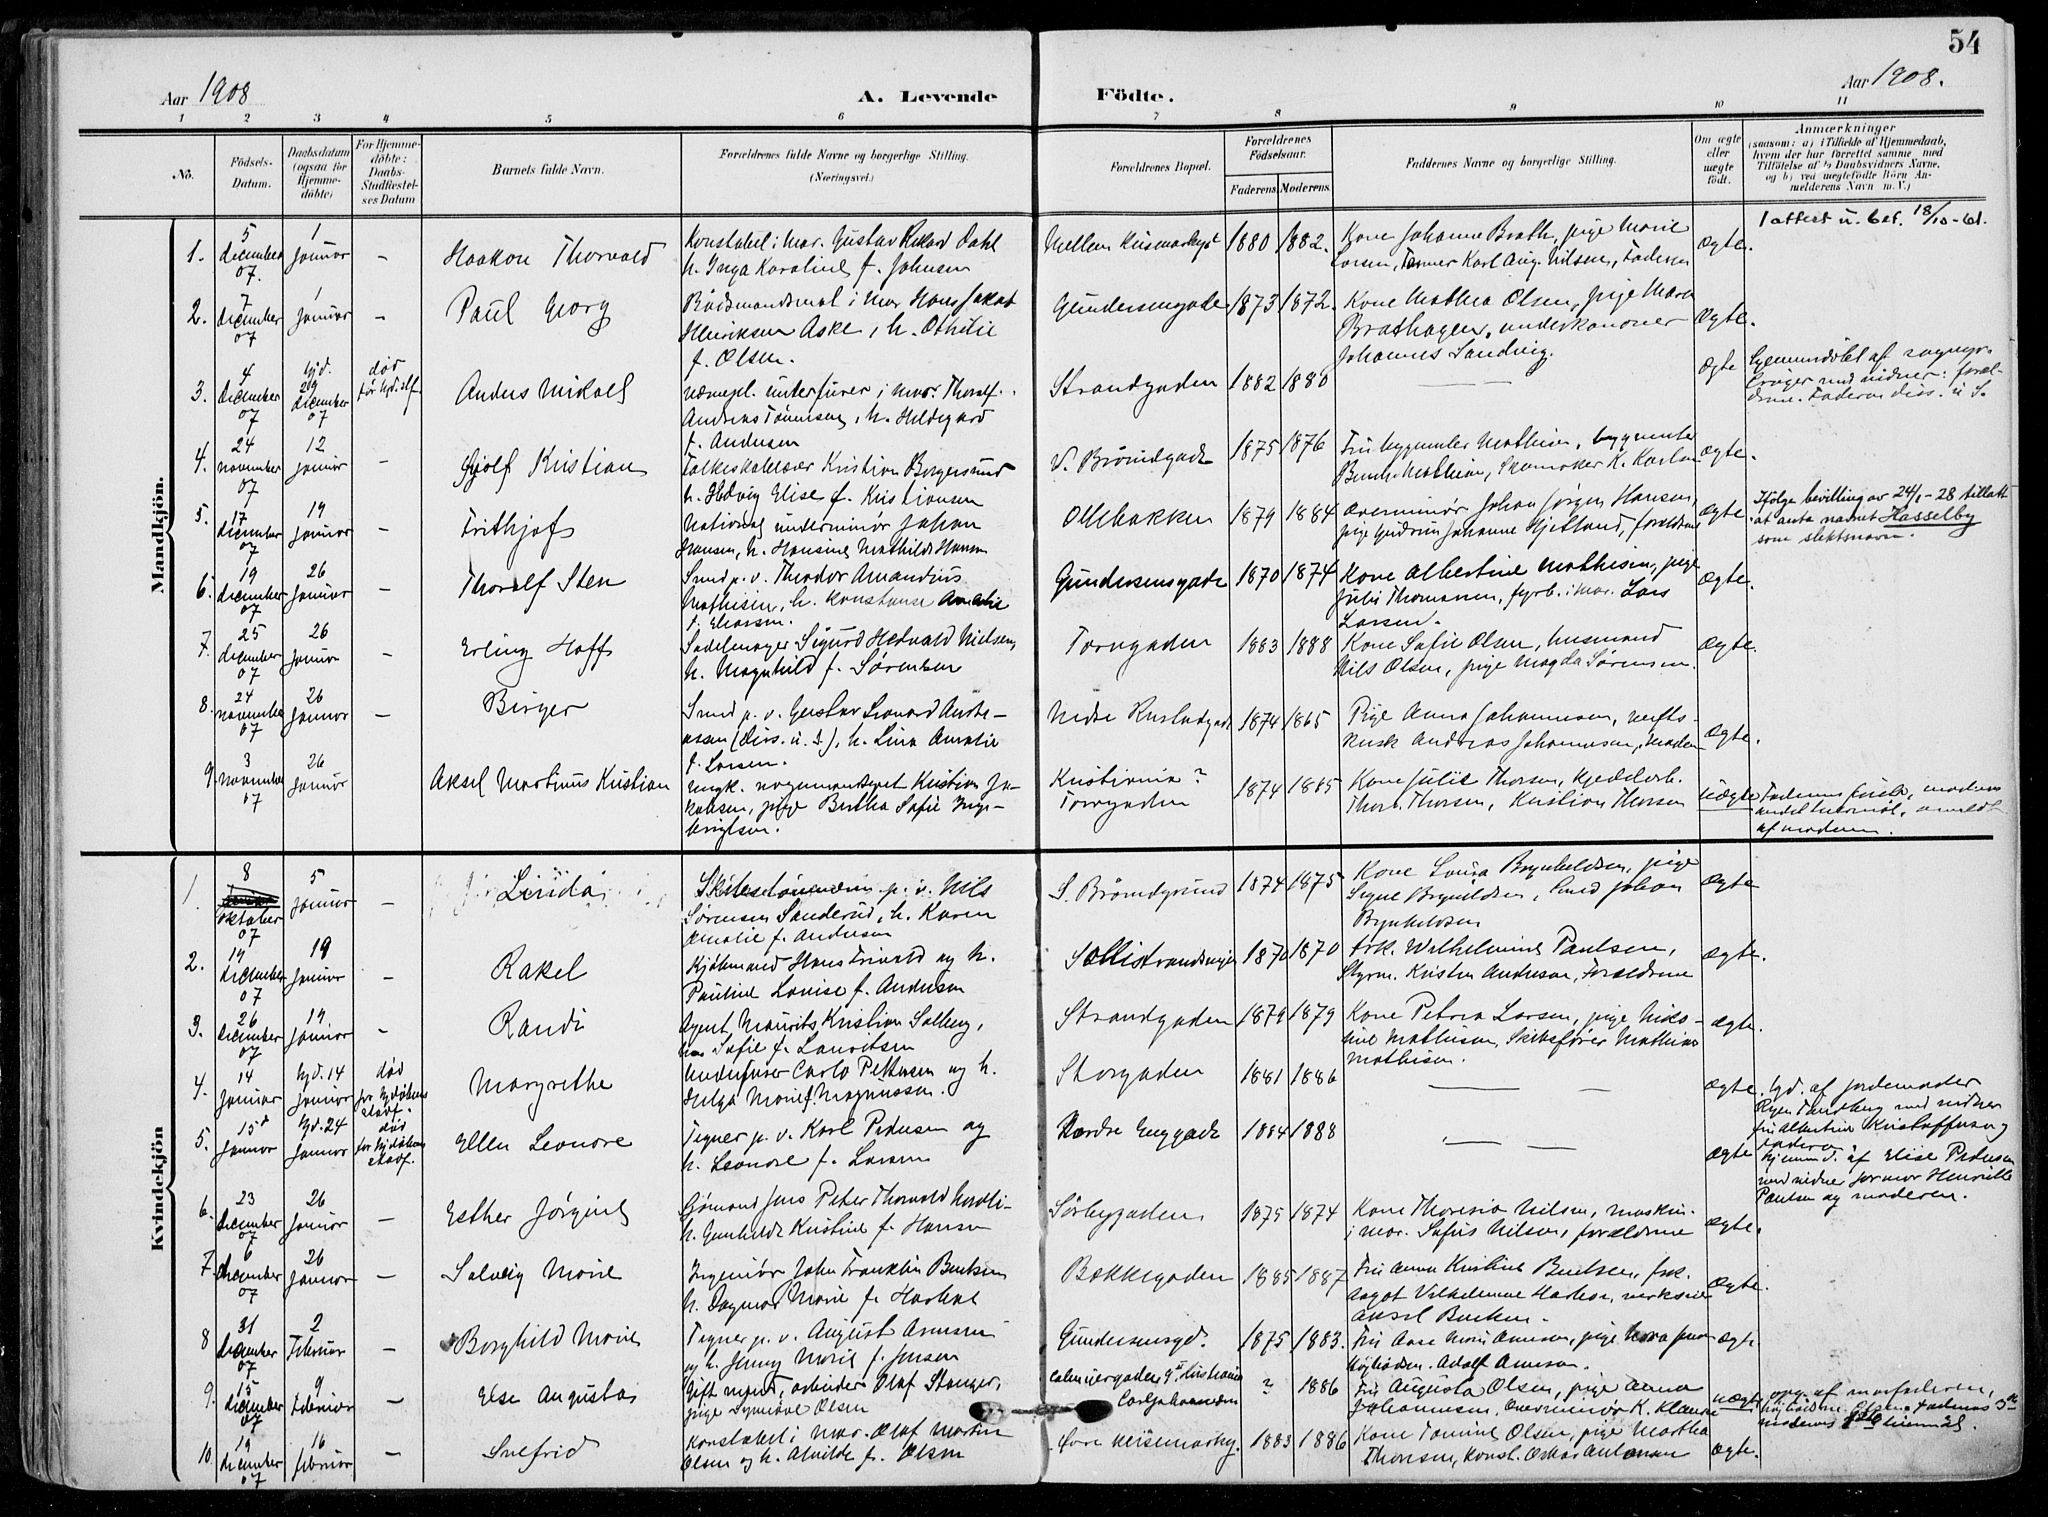 54
Aar 1908
A. Levende
Födte.
Aar 1908.
1 2 3 4 5 6 7 8 9 10 11
No.
Födsels-
Datum.
Daabsdatum
(ogsaa for
Hjemme-
döbte)
For Hjemme-
döbte:
Daabs-
Stadfæstel-
ses Datum
Barnets fulde Navn.
Forældrenes fulde Navne og borgerlige Stilling.
(Næringsvei.)
Forældrenes Bopæl.
Forældrenes
Födselsaar.
Faderens. Moderens.
Faddernes Navne og borgerlige Stilling.
Om ægte
eller
uægte
födt.
Anmærkninger
(saasom: a) i Tilfælde af Hjemmedaab,
hvem der har forrettet samme med
Tilföielse af 2/3 Daabsvidners Navne,
og b) ved uægtefödte Börn An-
melderens Navn m. V.)
Mandkjön.
1.
5
december
07.
1
januar
–
Haakon Thorvald
Konstabel i mar. Gustav Rikard Dahl
h. Inga Karoline f. Johnsen
1880
1882.
Kone Johanne Brath, pige Marie
Larsen, Karl Aug. Nilsen, Faderen
Ægte.
1 attest u. bet. 18/10-61.
2.
7
december
07
1
januar
–
Paul Georg
Baadsmandsmat i mar Hans Jakob
Henriksen Aske, h. Othilie
f. Olsen.
Gundersensgade
1873
1872.
Kone Mathea Olsen, pige Maren
Brathagen, underkanoner
Johannes Sandvig.
Ægte.
3.
4
december
07
hjd.
29
december
07
død
før hjd. stf.
Anders Mikael
værnepl. underfurer i mar. Thoralf
Andreas Tønnesen, h. Hildegard
f. Andersen
Strandgaden
1882
1880
Ægte
Hjemmedøbt af sogneprest
med vidner: foræl-
drene. Faderen diss. u. S.
4.
24
november
07
12
januar
–
Gjølf Kristian
Folkeskolelærer Kristian Borgersrud
h. Hedvig Elise f. Kristiansen
V. Brårudgade
1875
1876
Fru bygmester Mathisen, bygmester
Bernh. Mathisen, Skomaker K. Karlsen
Ægte.
5.
17
december
07
19
januar
–
Frithjof
National underminør Johan
Hansen, h. Hansine Mathilde Hansen
Ollebakken
1879
1884
overminør Johan Jørgen Hansen,
pige Gudrun Johanne Hjelland, forældrene
Ægte
Ifølge bevilling av 24/1-28 tillatt
at anta navnet Hasselby
som slektsnavn.
6.
19
december
07
26
januar
–
Thoralf Sten
Smed p. v. Theodor Amandius
Mathisen, h. Konstanse Amalie
f. Eliassen.
Gundersensgade
1870
1874
Kone Albertine Mathisen, pige
Julie Thomassen, fyrb. i mar. Lars
Larsen.
Ægte.
7.
25
december
07
26
januar
–
Erling Hoff
Sadelmager Sigurd Hedvald Nielsen,
h. Magnhild f. Sørensen
Torvgaden
1883
1888
Kone Sofie Olsen, husmand
Nils Olsen, pige Magda Sørensen.
Ægte.
8.
24
november
07
26
januar
–
Birger
Smed p. v. Gustav Leonard Andre-
assen (diss. u. S.), h. Lina Amalie
f. Larsen.
1874
1865
Pige Anna Johannesen, verfts-
kusk Andreas Johannesen, moderen
Ægte.
9.
3
november
07
26
januar
Aksel Martinus Kristian
ungk. vognmandsgut Kristian Ja-
kobsen, pige Bertha Sofie Inge-
brigtsen.
Kristiania?
Torvgaden
1874
1885
Kone Julie Thorsen, kjedelarb.
Thorv. Thorsen, Kristian Thorsen
Uægte
Faderens første, moderens
andet leiermål, anmeldt
af moderen.
Kvindekjön
1.
8
oktober
07
5
januar
–
Linda
Skibstømmerm. p. v. Nils
Sørensen Sanderud, h. Karen
Amalie f. Andersen
S. Brårudgrund
1874
1875
Kone Lovisa Brynhildsen, pige
Signe Brynildsen, smed Johan
Brynhildsen
Ægte
2.
14
december
07
19
januar
–
Rakel
Kjøbmand Hans Trivald og h.
Pauline Lovise f. Andersen
1870
1870
frk. Wilhelmine Paulsen,
Styrm. Kristen Andersen, Forældrene
ægte.
3.
26
december
07
19
januar
–
Randi
Agent Maurits Kristian Solberg,
h. Sofie f. Lauritsen
Strandgaden
1879
1879
Kone Petrea Larsen, pige Niko-
line Mathisen, Skibsfører Mathias
Mathisen.
Ægte.
4.
14
januar
hjd. 14
januar
død
før hjdøbens
stadf.
Margrethe
Underfurer Carlo Pettersen og h.
Helga Marie f. Magnussen.
Storgaden
1881
1886
ægte.
hjd. af jordemoder
med vidner
fru Albertine Kristoffersen og
faderen
5.
15
januar
hjd. 24
januar
død
før hjdøbens
stadf.
Ellen Leonore
Tegner p. v. Karl Pedersen og
h. Leonore f. Larsen
Nordre Enggade
1884
1888
ægte
Hjemmed. af Elise Pedersen
med vidner farmor Henriette
Paulsen og moderen.
6.
23
december
07
26
januar
–
Esther Jørgine
Sjømand Jens Peter Thorvald Nordli
h. Gunhilde Kristine f. Hansen
Sørbygaden
1875
1874
Kone Thoresia Nilsen, maskin.
i mar. Sofus Nilsen, forældrene
ægte.
7.
6
december
07
26
januar
–
Solveig Marie
Ingeniør John Franklin Bentsen
h. Dagmar Marie f. Harboe
Bakkegaden
1885
1887
Fru Anna Kristine Bentsen, frk.
Aagot Vilhelmine Harboe,
Aksel Bentsen.
Ægte.
8
31
december
07
2
Februar
–
Borghild Marie
Tegner p. v. August Arnesen
og h. Jenny Marie f. Jensen
Gundersensgd.
1875
1883.
Fru Aase Marie Arnesen, pige
Adolf Arnesen.
Ægte
9.
15
december
07
9
Februar
–
Else Augusta
Gift mand, arbeider Olaf Stanger,
pige Synnøve Olsen
?
1886
Fru Augusta Olsen, pige Anna
Johannesen, overminør K. Klausen
uægte
opg. af morfaderen,
Olsen. Faderens 3die
moderens leiermål.
10.
19
december
07
16
februar
–
Snefrid
Konstabel i mar. Olaf Martin
Olsen og h. Alvilde f. Olsen
1883
1886
Kone Tomine Olsen, pige Martha
Thoresen, Konst. Oskar Antonsen
Ægte.